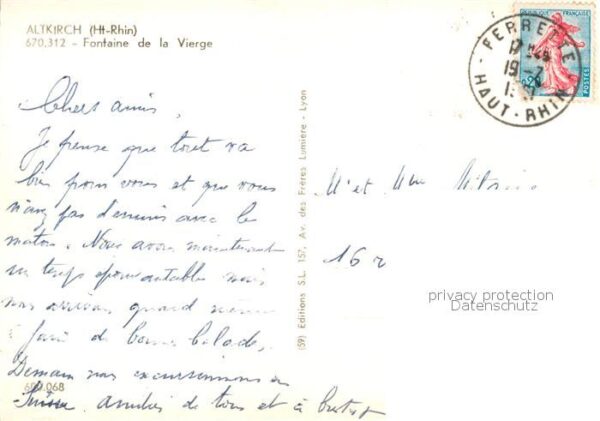 ALTKIRCH (Ht-Rhin)
670.312 - Fontaine de la Vierge
Chers amis,
Je pense que tout va
bien pour vous et que vous
n'avez pas d'ennuis avec le
Nous avons maintenant
un temps épouvantable mais
nous arrivons quand même
à faire de bonnes balades,
Demain nous excursionnons en
Suisse. amitiés de tous et à bientôt
600.068
(59) Editions S.L. 157, Av. des Frères Lumière - Lyon
FERRETTE
17
19-7
HAUT-RHIN
RÉPUBLIQUE FRANÇAISE
0,20
POSTES
M et Mme
16 r
privacy protection
Datenschutz